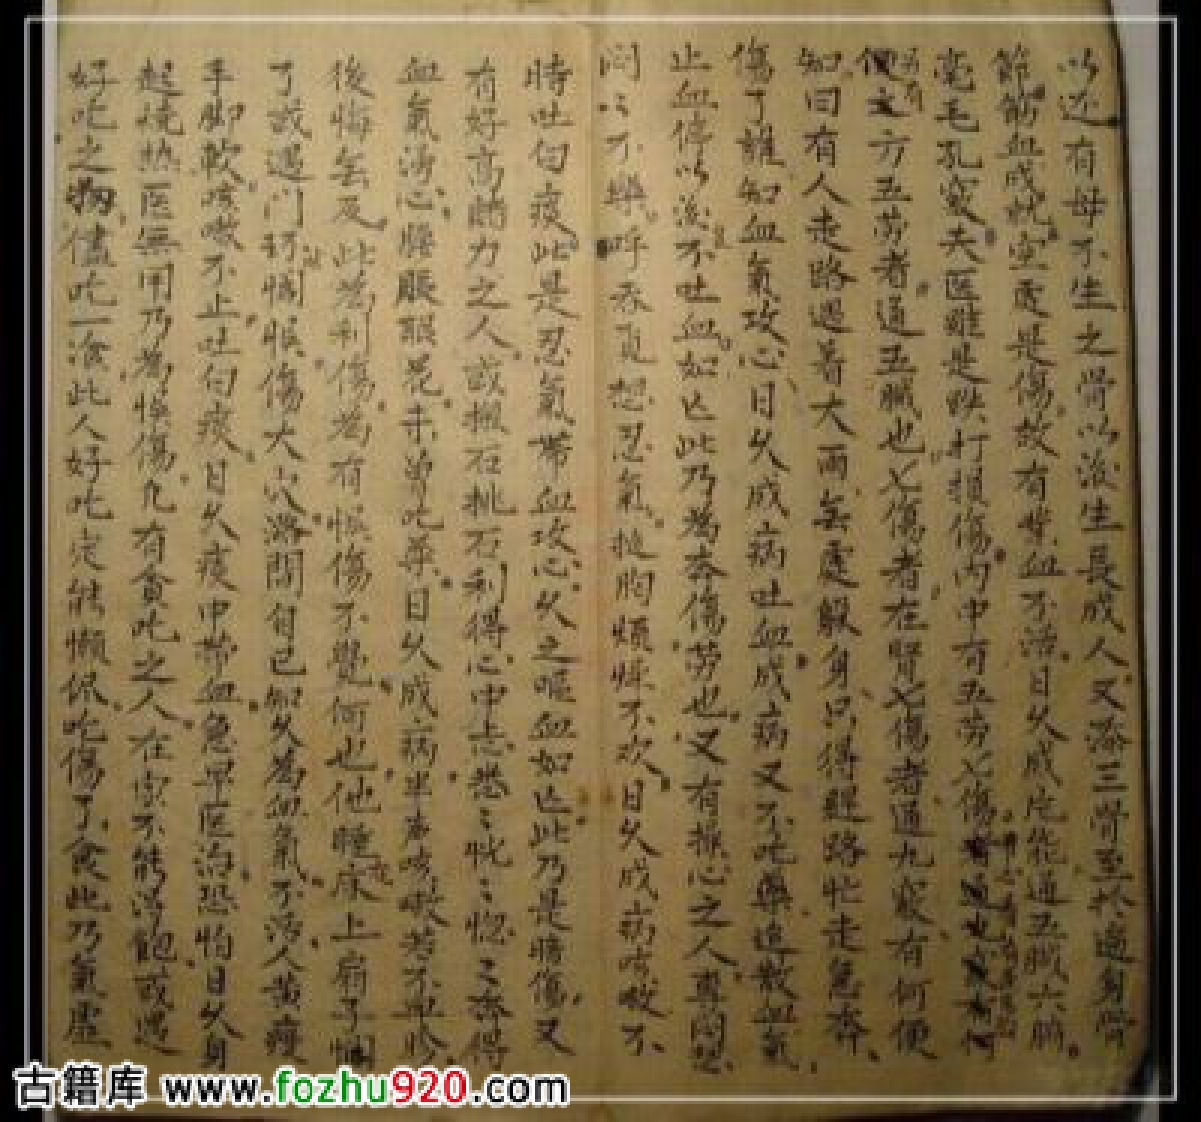 以还有母不生之骨以後生長成人又添三骨至於遍身骨
節筋血成就空處是傷故有紫血不活日久成 能通五臟六腑
毫毛孔竅夫医雖是跌打損傷内中有五劳七傷者
便文方五劳者通五臟也七傷者在腎七傷者通九竅有何便
知曰有人走路遇着大雨無處躲身只得趕路忙走急奔
傷了誰知血氣攻心日久成病吐血成病又不吃藥追散血氣
止血停以後不吐血如此乃為奔傷劳也又有操心之人專悶想
悶々不樂呼吞 想忍氣搥胸煩燥不欢日久成病咳嗽不
時吐白痰此是忍氣帶血攻心久之嘔血如此乃是暗傷又
有好高 力之人或搬石挑石利得心中忐悉々恍々惚々奔得
血氣湧心膨脹眼花未曾吃藥日久成病半声咳嗽若不早
後悔無及此為利傷為有悮傷不覺何也他睡床上扇子
了或遇门 傷大穴 開自已知久為血氣不活人黄瘦
手脚軟咳嗽不止吐白痰日久痰中带血急早医治恐怕日久身
起燒热医無用乃為悮傷凡有貪吃之人在家不能得飽或遇
好吃之物儘吃一飡此人好吃定能懶 吃傷了食此乃氣虚
古籍库 www.fozhu920.com